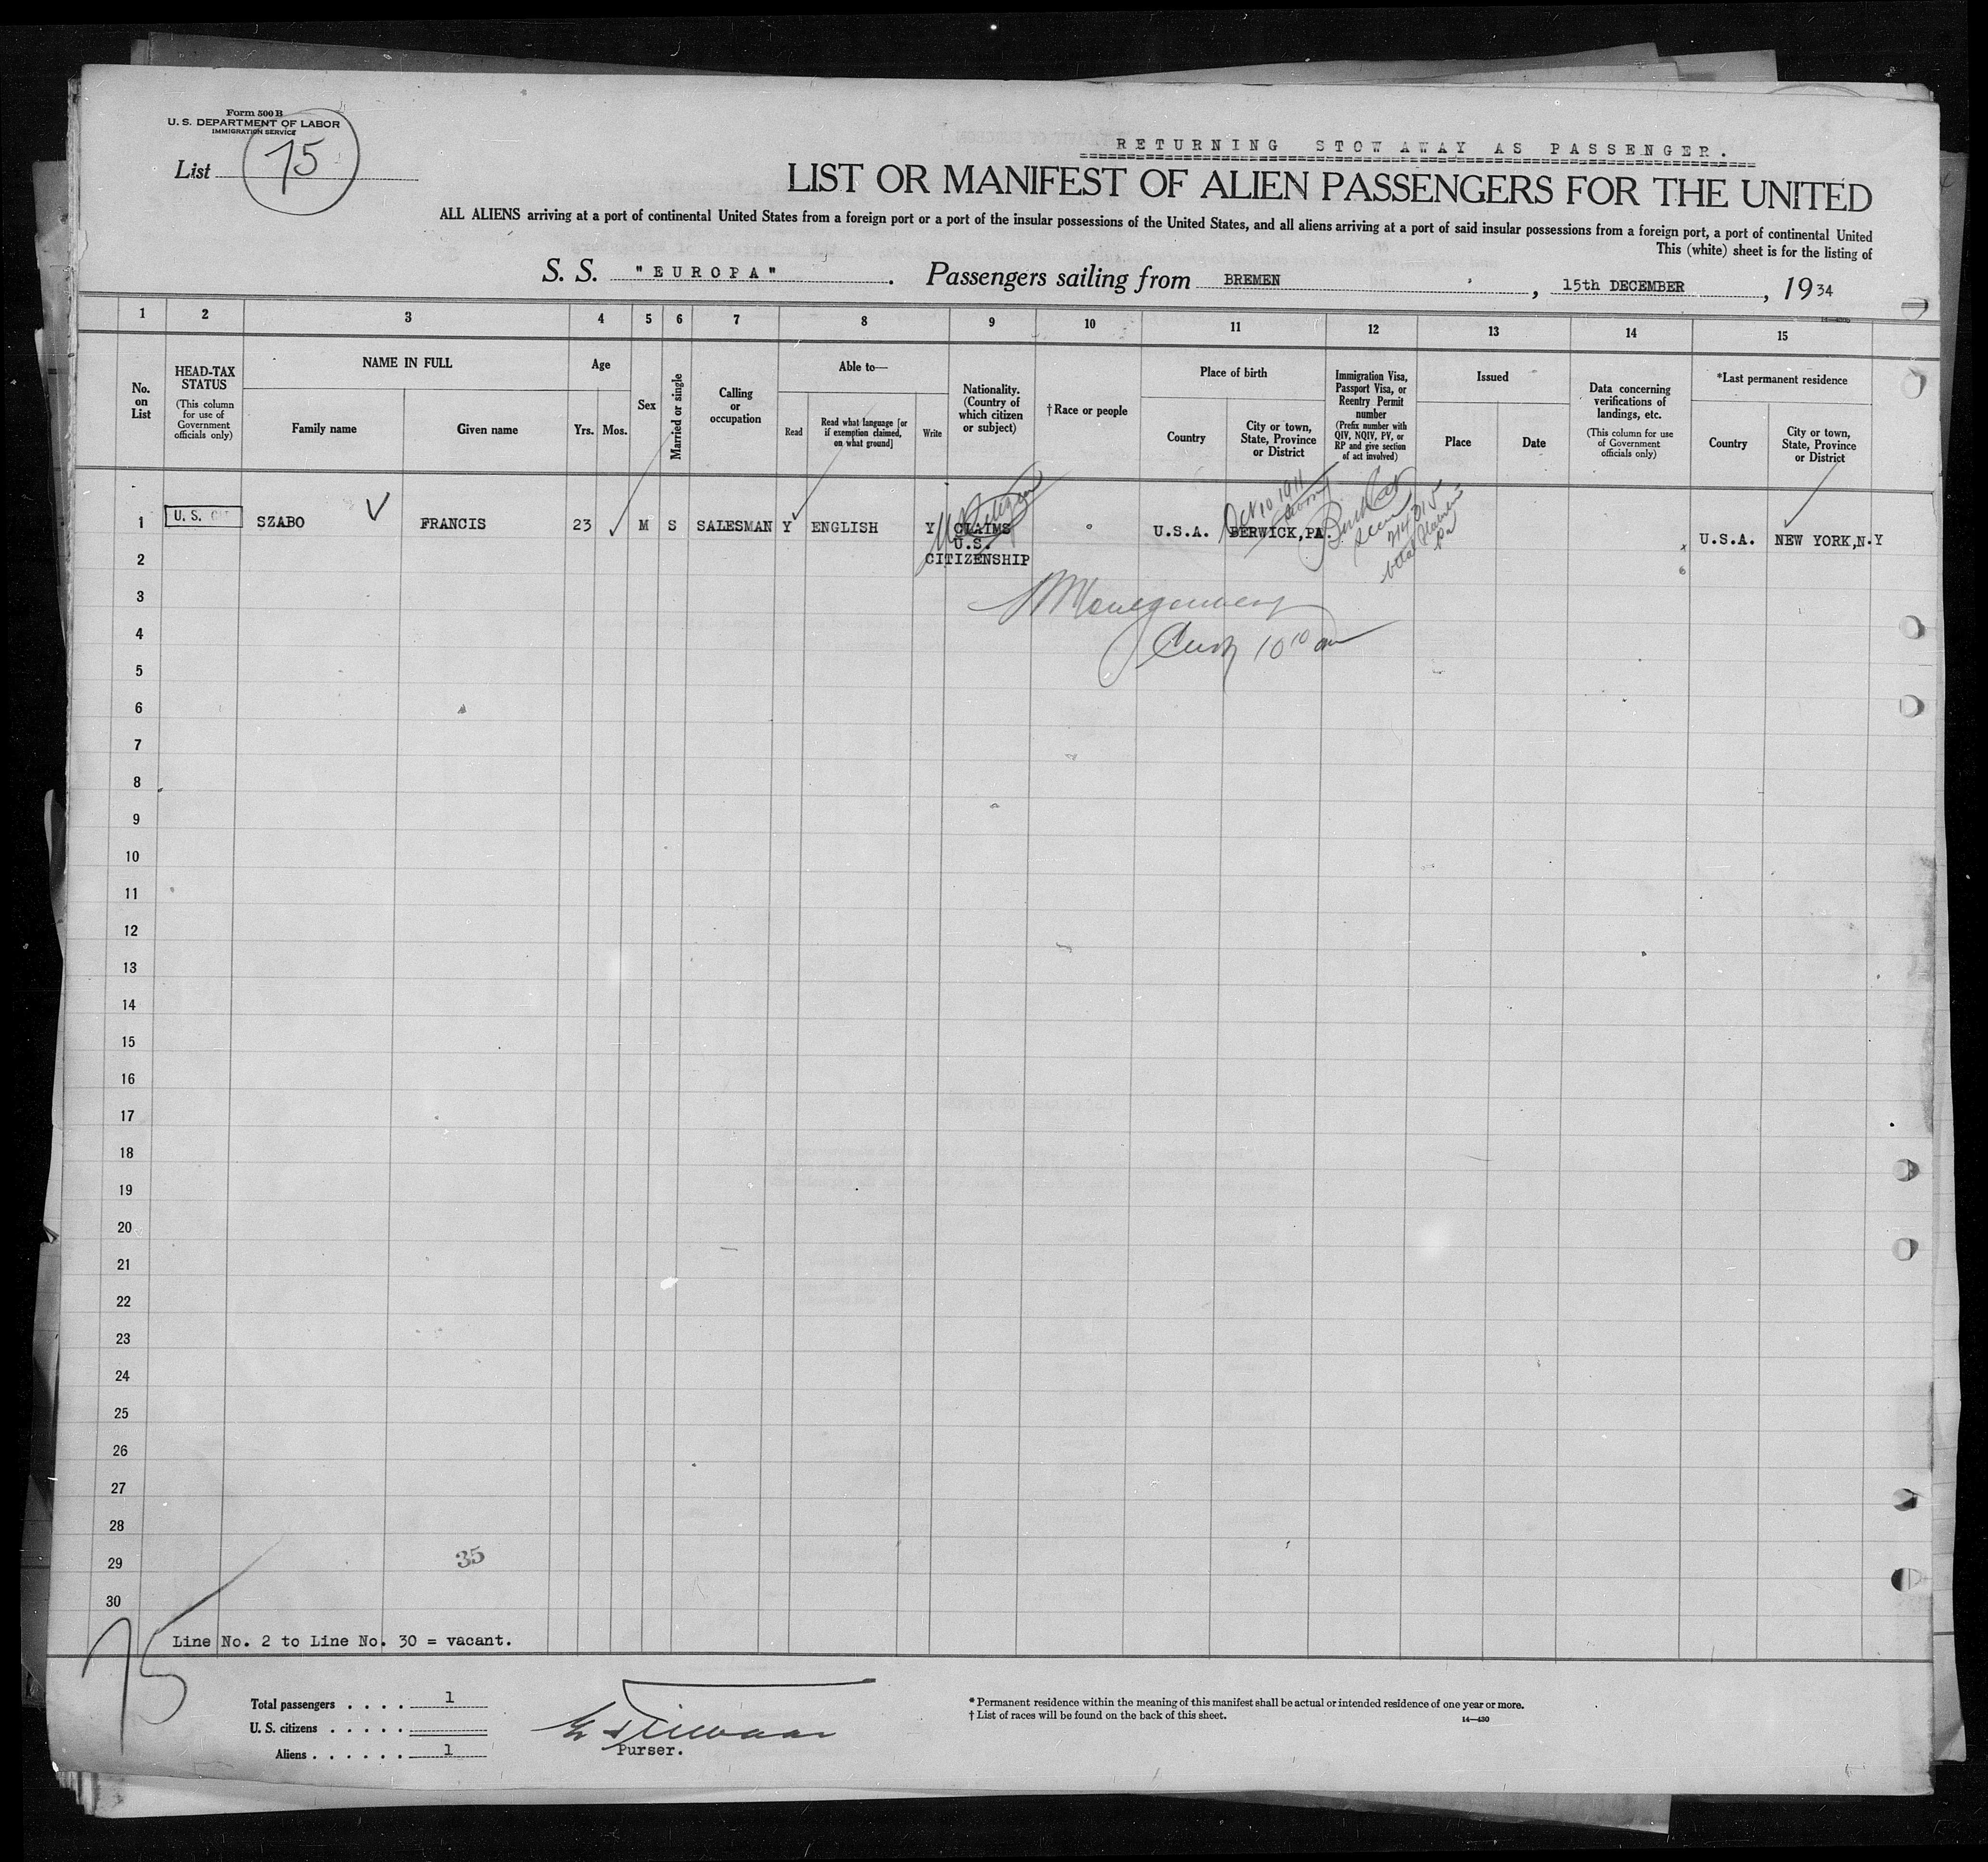 Form 500 B
U. S. DEPARTMENT OF LABOR
IMMIGRATION SERVICE
List 75
RETURNING STOWAWAY AS PASSENGER.
LIST OR MANIFEST OF ALIEN PASSENGERS FOR THE UNITED
ALL ALIENS arriving at a port of continental United States from a foreign port or a port of the insular possessions of the United States, and all aliens arriving at a port of said insular possessions from a foreign port, a port of continental United
This (white) sheet is for the listing of
S. S. "EUROPA". Passengers sailing from BREMEN, 15th DECEMBER, 1934
1 2 3 4 5 6 7 8 9 10 11 12 13 14 15
No. on List
HEAD-TAX STATUS
(This column for use of Government officials only)
NAME IN FULL
Family name
Given name
Age
Yrs.
Mos.
Sex
Married or single
Calling or occupation
Able to—
Read
Read what language [or if exemption claimed, on what ground]
Write
Nationality. (Country of which citizen or subject)
† Race or people
Place of birth
Country
City or town, State, Province or District
Immigration Visa, Passport Visa, or Reentry Permit number
(Prefix number with QIV, NQIV, PV, or RP and give section of act involved)
Issued
Place
Date
Data concerning verifications of landings, etc.
(This column for use of Government officials only)
*Last permanent residence
Country
City or town, State, Province or District
Oct 10 1911
1 U. S. CIT SZABO FRANCIS 23 M S SALESMAN Y ENGLISH Y CLAIMS U.S. CITIZENSHIP U.S.A. BERWICK,PA. U.S.A. NEW YORK,N.Y
seen
Pa
2
3
4
10 10 am
5
6
7
8
9
10
11
12
13
14
15
16
17
18
19
20
21
22
23
24
25
26
27
28
29
35
30
75
Line No. 2 to Line No. 30 = vacant.
Total passengers . . . . 1
U. S. citizens . . . . .
Aliens . . . . . . 1
Purser.
* Permanent residence within the meaning of this manifest shall be actual or intended residence of one year or more.
† List of races will be found on the back of this sheet.
14—430